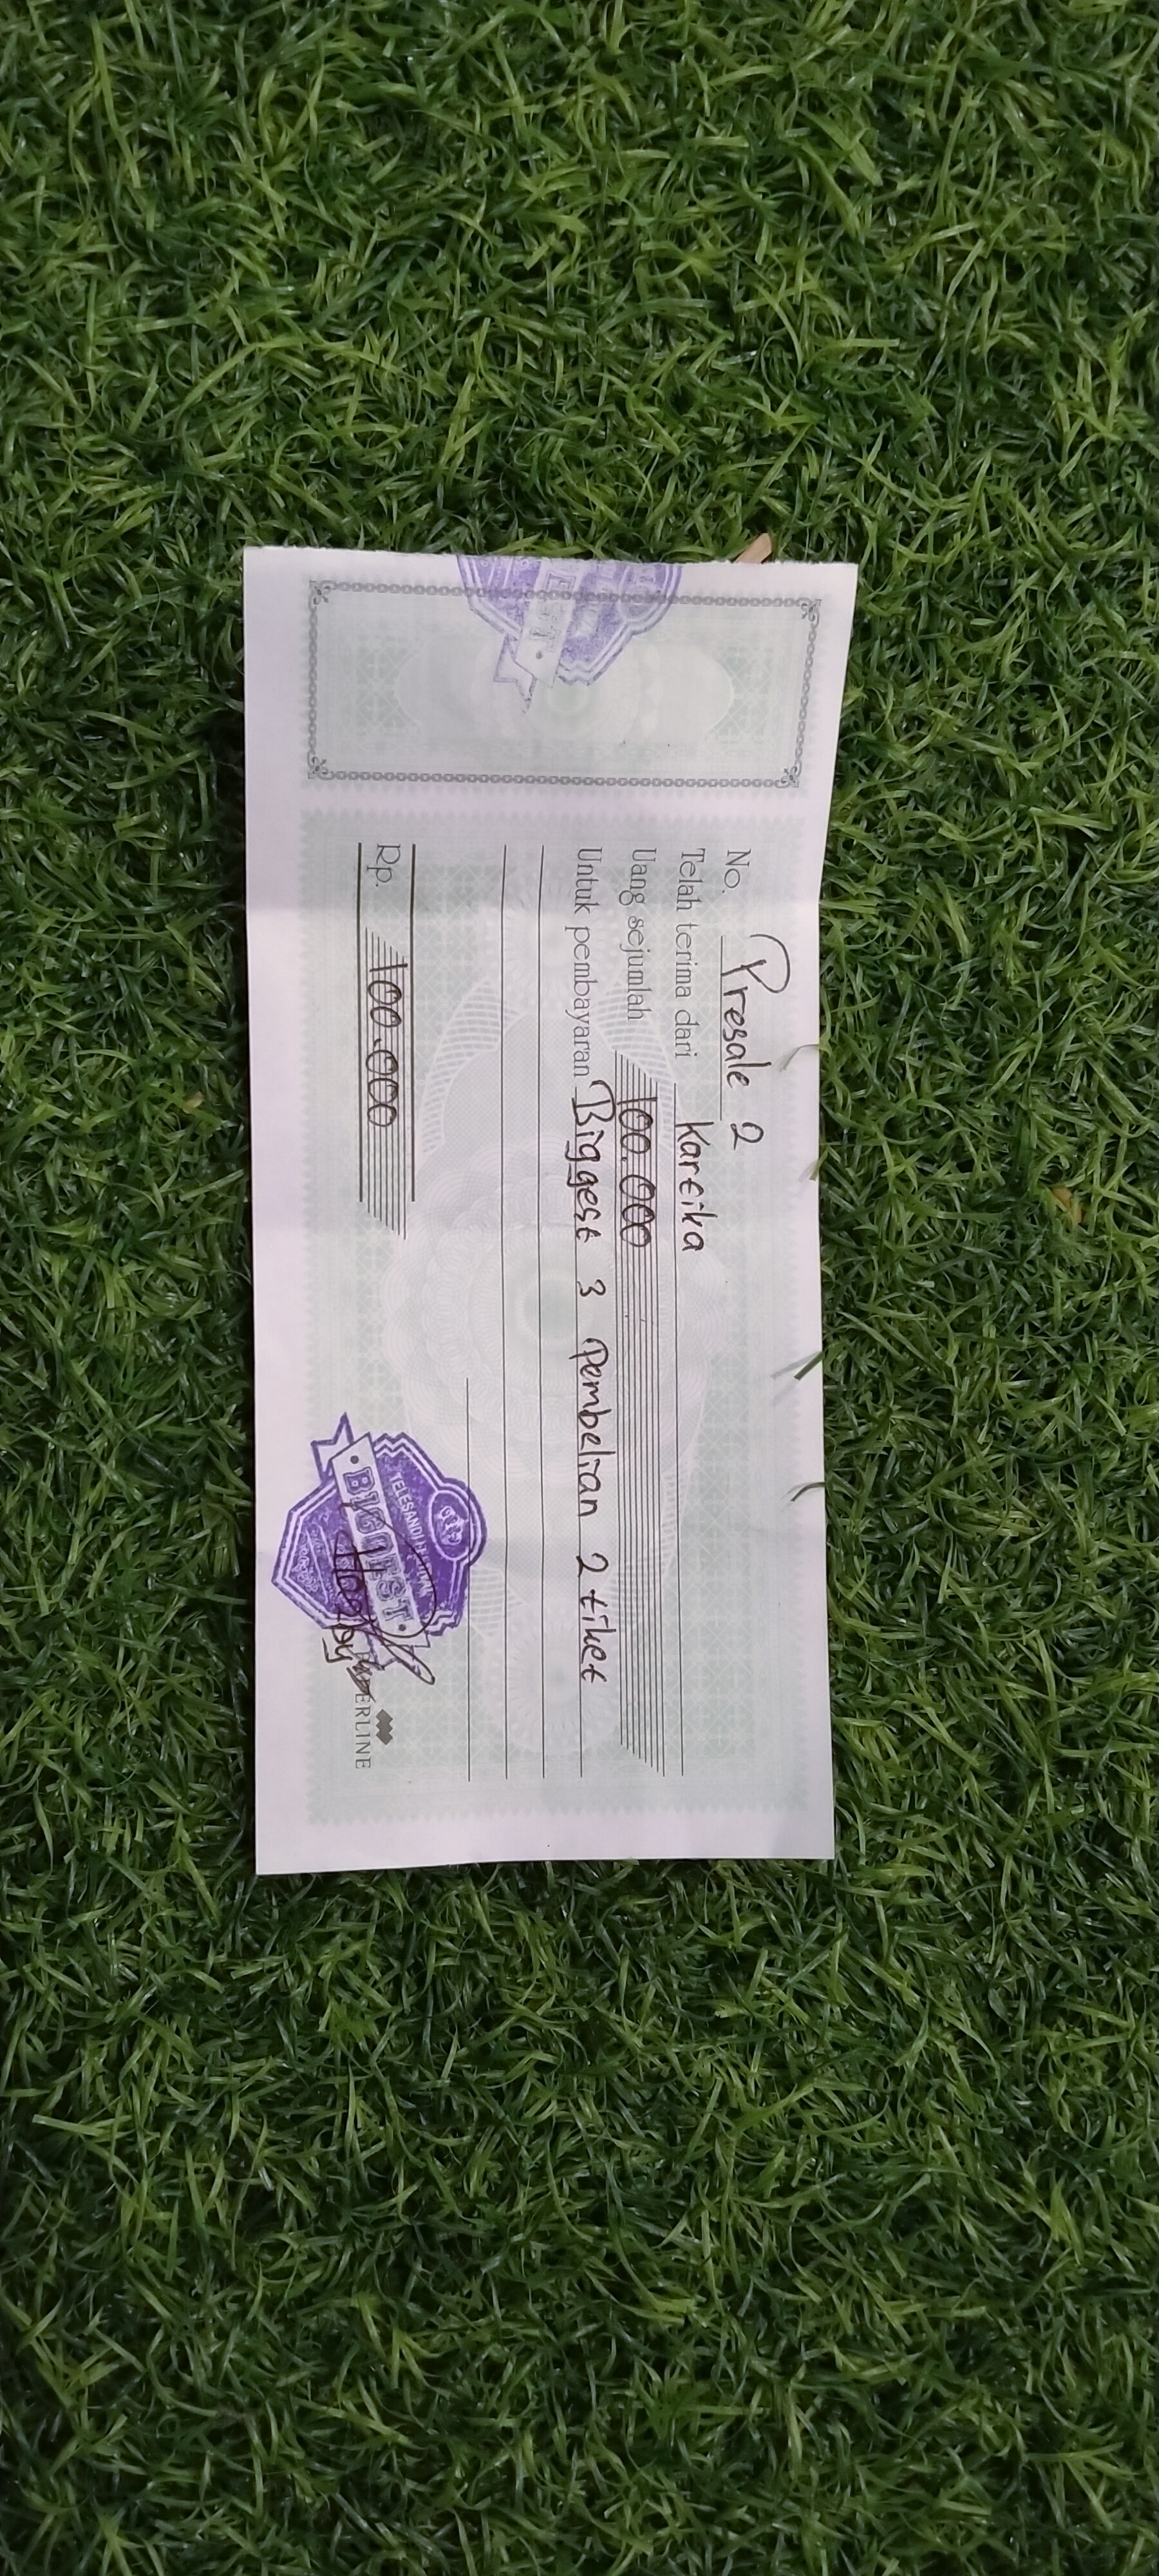 No. Presale 2
Telah terima dari Kartika
Uang sejumlah 100.000
Untuk pembayaran Biggest 3 pembelian 2 tiket
Rp. 100.000
BIGGEST